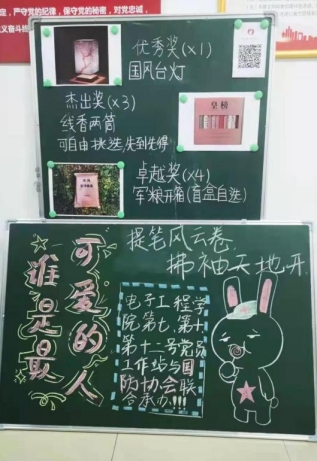 定，严守党的纪律，保守党的秘密，对党忠诚，
义奋斗终
优秀奖(×1)
国风台灯
杰出奖(×3)
线香两筒
可自由挑选，先到先得
皇榜
卓越奖(×4)
军粮开箱(盲盒自选)
提笔风云卷，
拂袖天地开.
谁是最
可爱的人
电子工程学
院第七、第十
第十二号党员
工作站与国
防协会联
合承办!!!